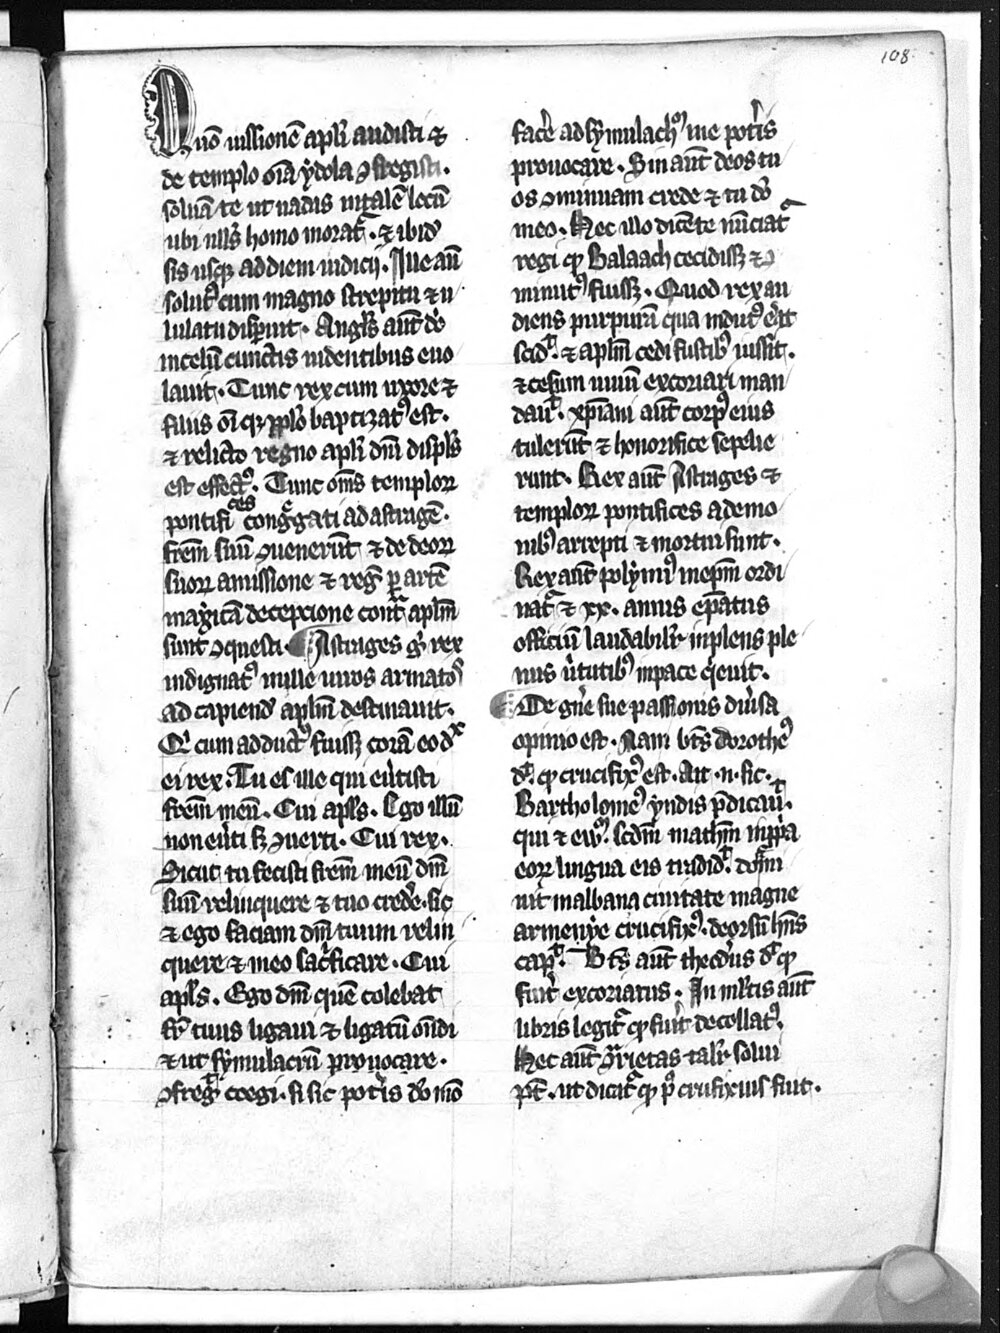 108.
Quō iussionē apl̄i audisti ⁊
de templo oīa ydola ꝯfregisti.
soluā te ut uadis in talē locū
ubi nll̓s homo moratᷣ. ⁊ ibid̓
sis usqꝫ ad diem iudicij. Ille aū
solut᷒ cum magno strepitu ⁊ u
lulatu disꝑuit. Angl̓s aūt dn̄i
in celū cunctis uidentibus euo
lauit. Tunc rex cum uxore ⁊
filiis oīqꝫ ppl̓o baptizat᷒ est.
⁊ relicto regno apl̄i dn̄i discipl̓s
est effect᷒. Tunc om̄s temploꝝ
pontifices congᷓgati ad astragē.
frēm suū ꝯuenerūt ⁊ de deoꝝ
suoꝝ amissione ⁊ reg̓ ꝑ artē
magicā decepcione contᷓ apl̄m
sunt ꝯquesti. Astrages gͦ rex
indignat᷒ mille uiros armatos
ad capiend̓ apl̄m destinauit.
Qͥ cum adduct᷒ fuissꝫ corā eo dͯ
ei rex. Tu es ille qui eu̓tisti
frēm meū. Cui apl̓s. Ego illū
non eu̓ti sꝫ ꝯuerti. Cui rex.
Sicut tu fecisti frēm meū dm̄
suū relinquere ⁊ tuo cred̓e. sic
⁊ ego faciam dm̄ tuum relin
quere ⁊ meo sacᷓficare. Cui
apl̓s. Ego dm̄ quē colebat
fr̄ tuus ligaui ⁊ ligatū on̄di
⁊ ut symulacrū prouocare.
ꝯfreg̓ͭ coegi. si sic pot̓is dō mō
fac̓e ad symulach᷒ me pot̓is
prouocare. Sin aūt deos tu
os ꝯminuam crede ⁊ tu dō
meo. Hec illo dicēte nūciatᷣ
regi qꝫ Balaach cecidissꝫ ⁊ ꝯ
minut᷒ fuissꝫ. Quod rex au
diens purpurā qua indut᷒ erat
scid̓ͭ. ⁊ apl̄m cedi fustibꝫ iussit.
⁊ cesum uiuū excoriari man
dau̓ͭ. xp̄iani aūt corp᷒ eius
tulerūt ⁊ honorifice sepelie
runt. Rex aūt Astrages ⁊
temploꝝ pontifices a demo
nibꝫ arrepti ⁊ mortui sunt.
Rex aūt polymi᷒ in ep̄m ordi
natᷣ ⁊ xx. annis ep̄atus
officiū laudabilit̓ inplens ple
nus u̓tutibꝫ in pace qͥeuit.
De gn̓e sue passionis diu̓sa
opinio est. Nam bt̄s dorothe᷒
dͭ qꝫ crucifix᷒ est. Ait .n. sic.
Bartholome᷒ yndis p̄dicau̓ͭ.
qui ⁊ eu̓ᵐ. scd̄m math̄m in ꝓpͥa
eoꝝ lingua eis tradid̓ͭ. dormi
uit in albana ciuitate magne
armenye crucifix᷒. deorsū hn̄s
cap̓ͭ. Bt̄s aūt theodr̄us dͭ qꝫ
fuit excoriatus. In ml̓tis aūt
libris legitᷣ qꝫ fuit decollat᷒.
Hec aūt ꝯͬrietas talit̓ solui
pt̄. ut dicatᷣ qꝫ pͥ crufixus fuit.